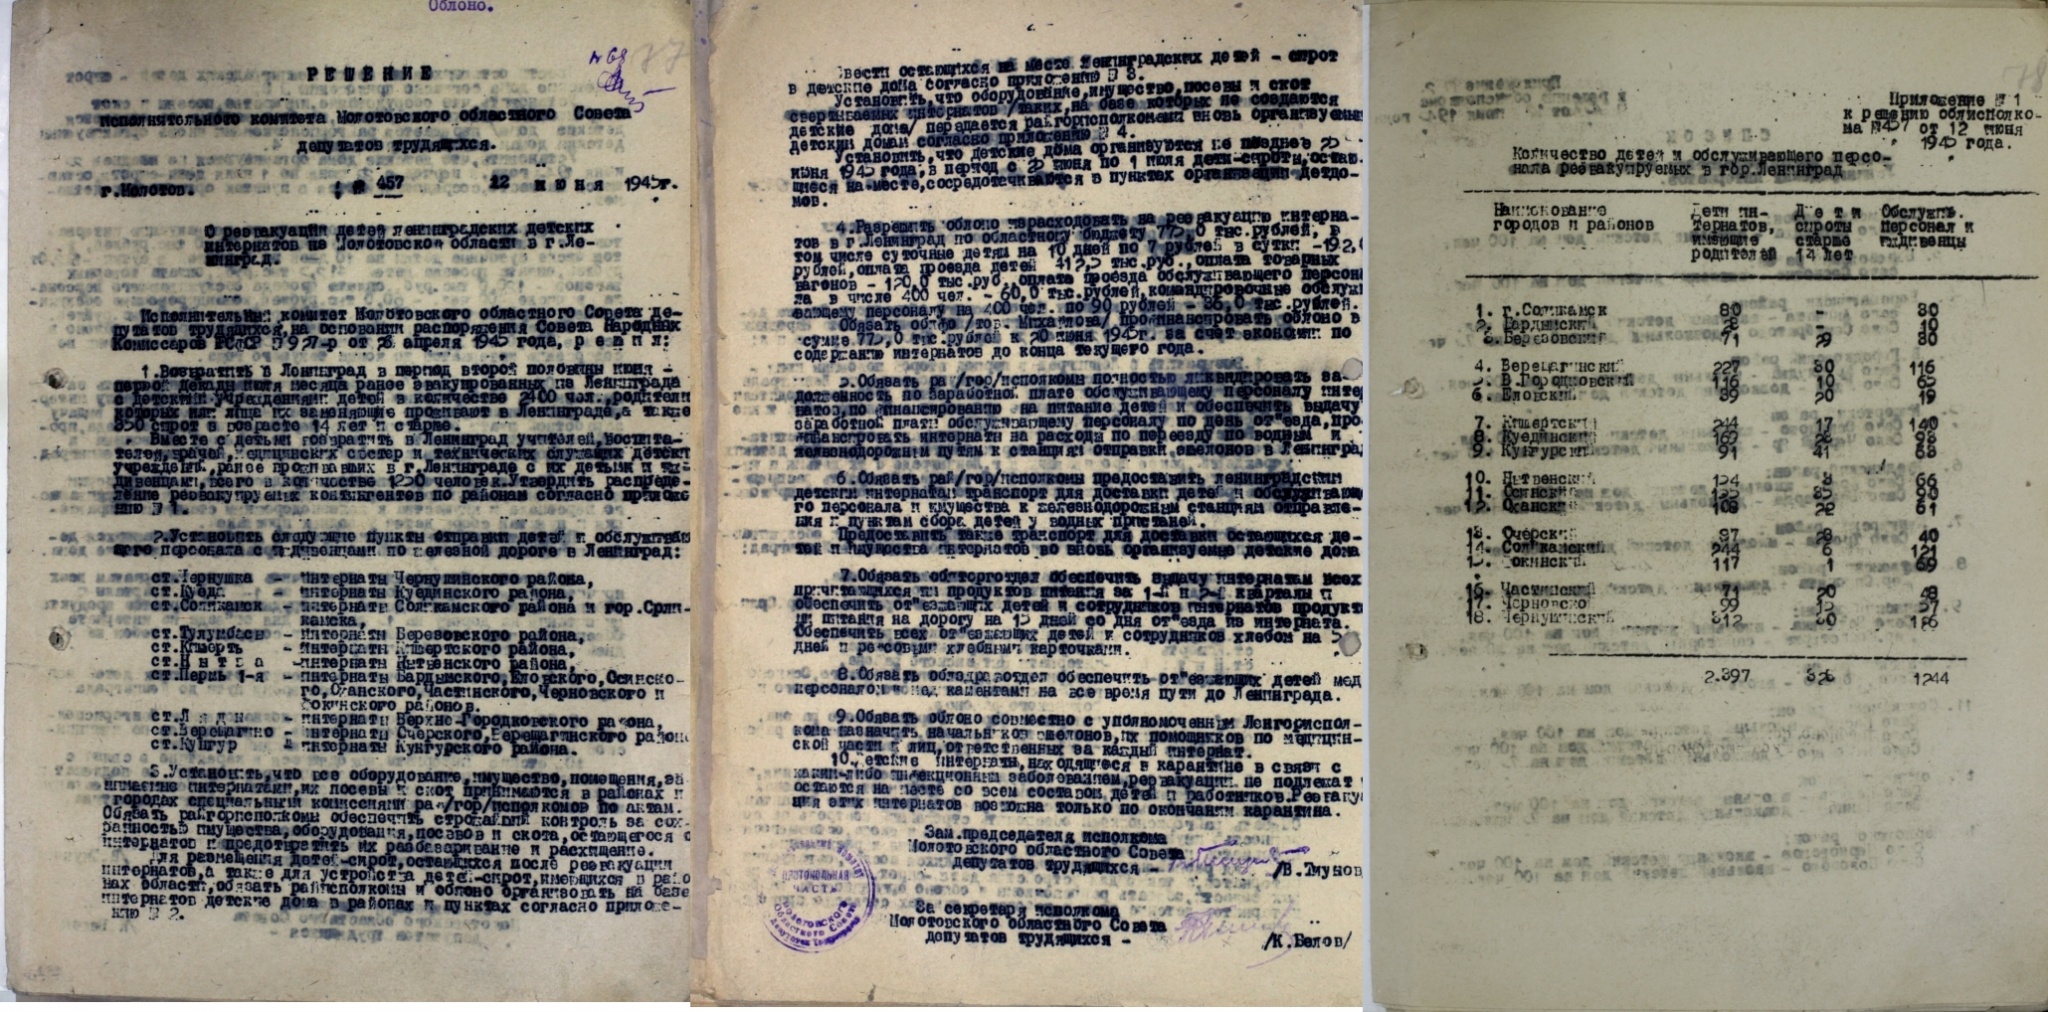 Облоно.
РЕШЕНИЕ
исполнительного комитета Молотовского областного Совета
депутатов трудящихся.
г.Молотов. № 457 12 июня 1945г.
О реэвакуации детей ленинградских детских
интернатов из Молотовской области в г.Ле-
нинград.
Исполнительный комитет Молотовского областного Совета де-
путатов трудящихся, на основании распоряжения Совета Народных
Комиссаров РСФСР № 927-р от 28 апреля 1945 года, р е ш и л:
1.Возвратить в Ленинград в период второй половины июня -
первой декады июля месяца ранее эвакуированных из Ленинграда
с детскими учреждениями детей в количестве 2400 чел., родители
которых или лица их заменяющие проживают в Ленинграде, а также
350 сирот в возрасте 14 лет и старше.
Вместе с детьми возвратить в Ленинград учителей, воспита-
телей, врачей, медицинских сестер и технических служащих детских
учреждений, ранее проживавших в г.Ленинграде с их детьми и иж-
дивенцами, всего в количестве 1250 человек. Утвердить распреде-
ление реэвакуируемых контингентов по районам согласно приложе-
нию № 1.
2.Установить следующие пункты отправки детей и обслуживаю-
щего персонала с иждивенцами по железной дороге в Ленинград:
ст.Чернушка - интернаты Чернушинского района,
ст.Куеда - интернаты Куединского района,
ст.Соликамск - интернаты Соликамского района и гор.Соли-
камска,
ст.Тулумбасы - интернаты Березовского района,
ст.Кишерть - интернаты Кишертского района,
ст.Н ы т в а - интернаты Нытвенского района,
ст.Пермь 1-я - интернаты Бардымского, Еловского, Осинско-
го, Оханского, Частинского, Черновского и
Фокинского районов.
ст.Л я д ы - интернаты Верхне-Городковского района,
ст.Верещагино - интернаты Очерского, Верещагинского районов
ст.Кунгур - интернаты Кунгурского района.
3.Установить, что все оборудование, имущество, помещения, за-
нимаемые интернатами, их посевы и скот принимаются в районах и
городах специальными комиссиями рай/гор/исполкомов по актам.
Обязать райгорисполкомы обеспечить строжайший контроль за сох-
ранностью имущества, оборудования, посевов и скота, остающегося от
интернатов и предотвратить их разбазаривание и расхищение.
Для размещения детей-сирот, остающихся после реэвакуации
интернатов, а также для устройства детей-сирот, имеющихся в райо-
нах области, обязать райисполкомы и облоно организовать на базе
интернатов детские дома в районах и пунктах согласно приложе-
нию № 2.
Ввести остающихся на месте Ленинградских детей - сирот
в детские дома согласно приложению № 3.
Установить, что оборудование, имущество, посевы и скот
свертываемых интернатов /таких, на базе которых не создаются
детские дома/ передается райгорисполкомами вновь организуемым
детским домам согласно приложению № 4.
Установить, что детские дома организуются не позднее
июня 1945 года, в период с июня по 1 июля дети-сироты, остаю-
щиеся на месте, сосредотачиваются в пунктах организации детдо-
мов.
4.Разрешить облоно израсходовать на реэвакуацию интерна-
тов в г.Ленинград по областному бюджету 775,0 тыс.рублей, в
том числе суточные детям на 10 дней по 7 рублей в сутки -192,0
рублей, оплата проезда детей 412,5 тыс.руб., оплата товарных
вагонов - 120,0 тыс.руб., оплата проезда обслуживающего персона-
ла в числе 400 чел. - 60,0 тыс.рублей, командировочные обслужи-
вающему персоналу на 400 чел. по 90 рублей - 36,0 тыс.рублей.
Обязать облфо /тов. Михайлова/ профинансировать облоно в
сумме 775,0 тыс.рублей к 20 июня 1945г. за счет экономии по
содержанию интернатов до конца текущего года.
5.Обязать рай/гор/исполкомы полностью ликвидировать за-
долженность по заработной плате обслуживающему персоналу интер-
натов, по финансированию на питание детей и обеспечить выдачу
заработной платы обслуживающему персоналу по день от"езда, про-
финансировать интернаты на расходы по переезду по водным и
железнодорожным путям к станциям отправки эшелонов в Ленинград
6.Обязать рай/гор/исполкомы предоставить ленинградским
детским интернатам транспорт для доставки детей и обслуживающе-
го персонала и имущества к железнодорожным станциям отправле-
ния и пунктам сбора детей у водных пристаней.
Предоставить также транспорт для доставки остающихся де-
тей и имущества интернатов во вновь организуемые детские дома
7.Обязать облторготдел обеспечить выдачу интернатам всех
причитающихся им продуктов питания за 1-й и 2-й кварталы и
обеспечить от"езжающих детей и сотрудников интернатов продукта-
ми питания на дорогу на 15 дней со дня от"езда из интерната.
Обеспечить всех от"езжающих детей и сотрудников хлебом на 5
дней и рейсовыми хлебными карточками.
8.Обязать облздравотдел обеспечить от"езжающих детей мед-
персоналом и медикаментами на все время пути до Ленинграда.
9.Обязать облоно совместно с уполномоченным Ленгориспол-
кома назначить начальников эшелонов, их помощников по медицин-
ской части и лиц, ответственных за каждый интернат.
10.Детские интернаты, находящиеся в карантине в связи с
каким-либо инфекционным заболеванием, реэвакуации не подлежат и
остаются на месте со всем составом детей и работников. Реэвакуа-
ция этих интернатов возможна только по окончании карантина.
Зам.председателя исполкома
Молотовского областного Совета
депутатов трудящихся - /В.Тиунов/
За секретаря исполкома
Молотовского областного Совета
депутатов трудящихся - /К.Белов/
ПРОТОКОЛЬНАЯ
ЧАСТЬ
78
Приложение № 1
к решению облисполко-
ма №457 от 12 июня
1945 года.
Количество детей и обслуживающего персо-
нала реэвакуируемых в гор.Ленинград
Наименование Дети ин- Д е т и Обслужив.
городов и районов тернатов, сироты персонал и
имеющие старше иждивенцы
родителей 14 лет
1. г.Соликамск 80 - 30
2. Бардымский 28 - 10
3. Березовский 71 29 30
4. Верещагинский 227 30 116
5. В.Городковский 116 10 65
6. Еловский 39 20 19
7. Кишертский 244 17 140
8. Куединский 93
9. Кунгурский 91 41
10. Нытвенский 134 8 66
11. Осинский 90
12. Оханский 108 22 61
13. Очерский 97 28 40
14. Соликамский 244 6 121
15. Фокинский 117 1 69
16. Частинский 71 20 48
17. Черновской 99
18. Чернушинский 312 30 186
2.397 326 1244